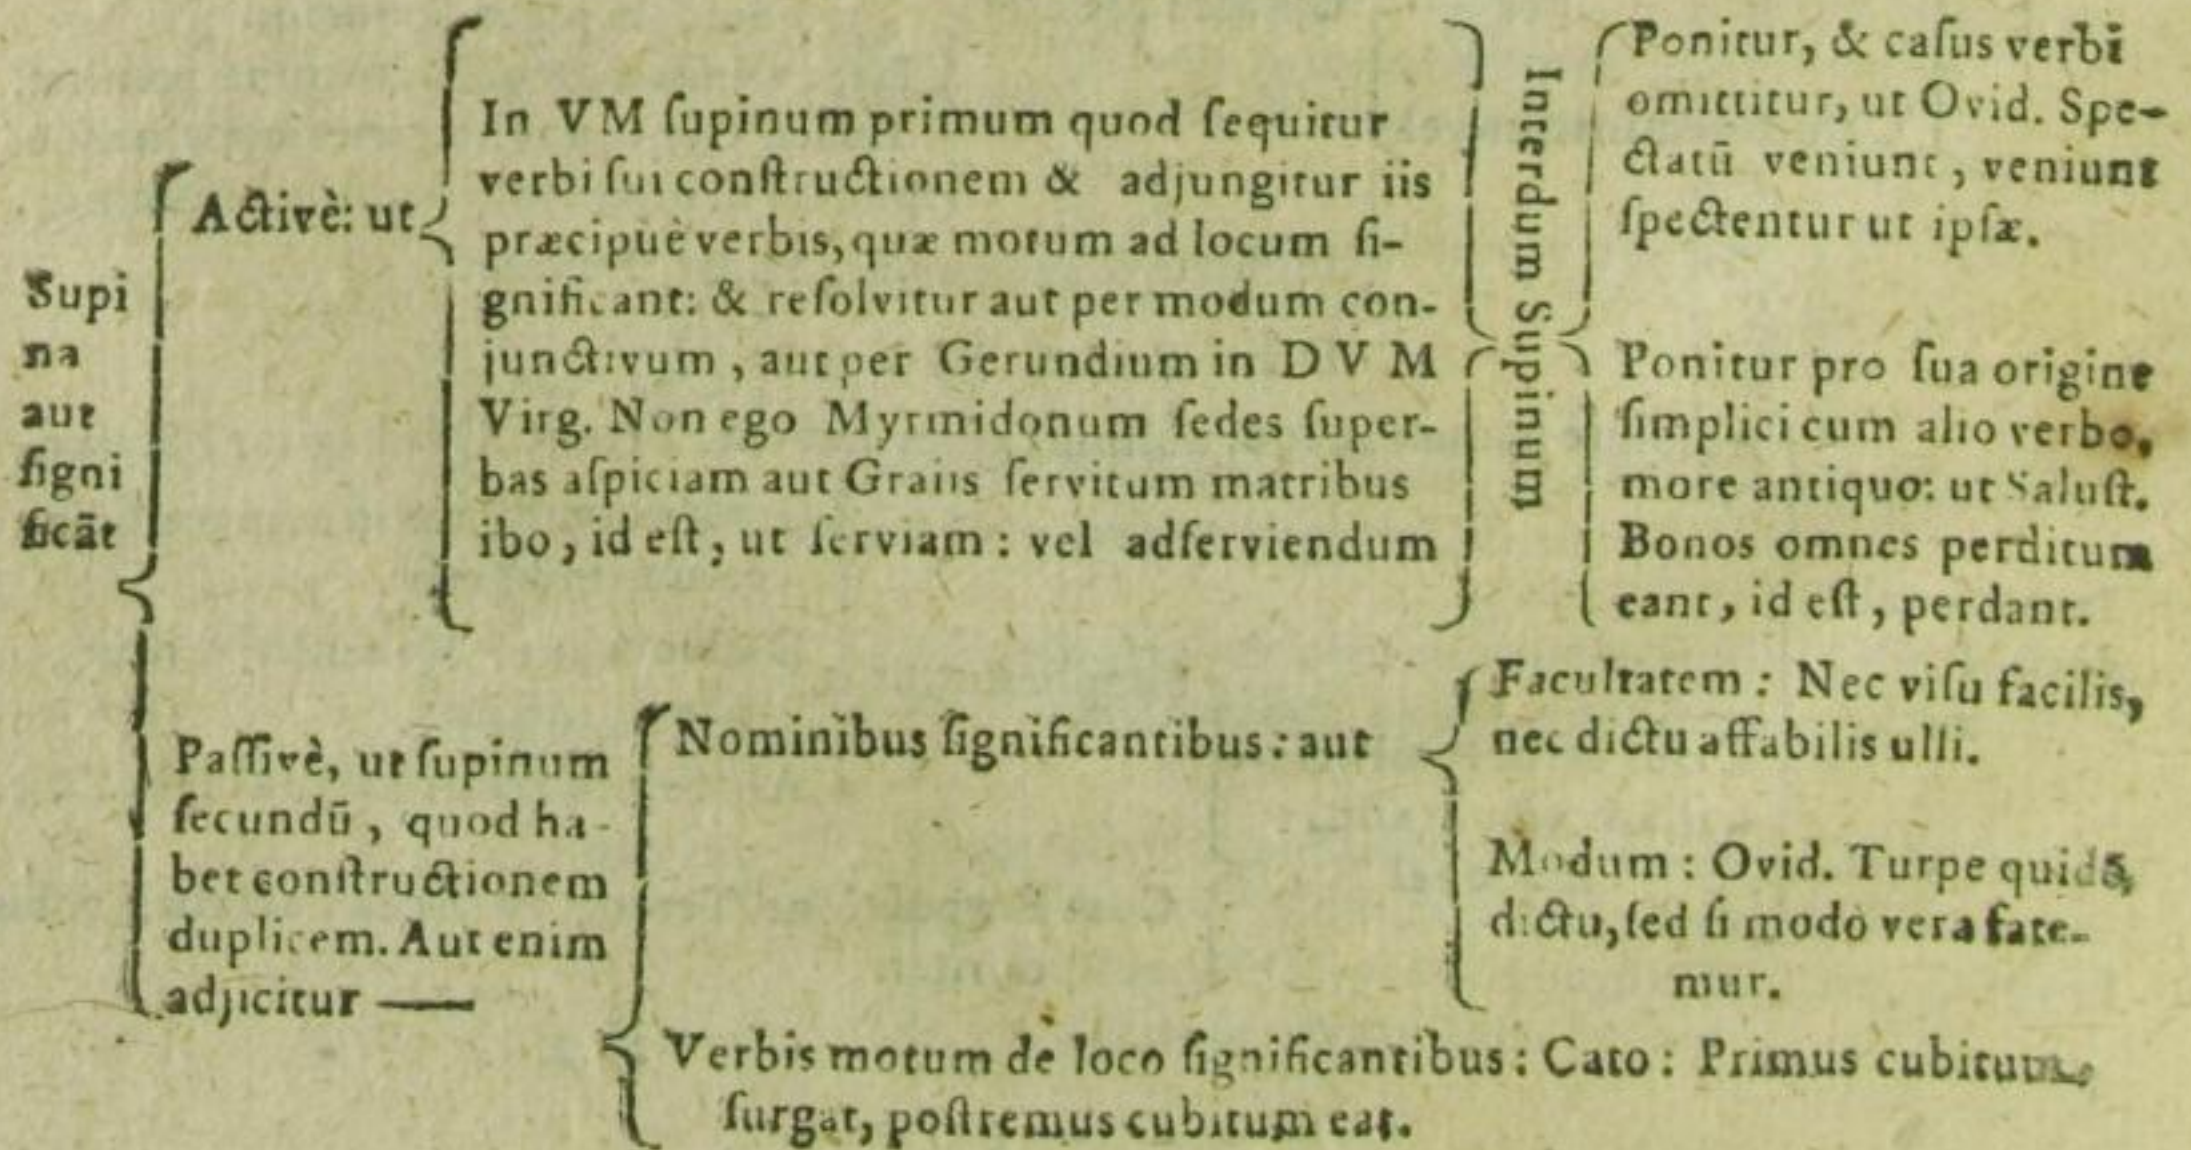 Supi
na
aut
ſigni
ficāt
Activè: ut
In VM ſupinum primum quod ſequitur
verbi ſui conſtructionem & adjungitur iis
præcipuè verbis, quæ motum ad locum ſi-
gnificant: & reſolvitur aut per modum con-
junctivum, aut per Gerundium in D V M
Virg. Non ego Myrmidonum ſedes ſuper-
bas aſpiciam aut Graiis ſervitum matribus
ibo, id eſt, ut ſerviam: vel adſerviendum
Interdum Supinum
Ponitur, & caſus verbi
omittitur, ut Ovid. Spe-
ctatū veniunt, veniunt
ſpectentur ut ipſæ.
Ponitur pro ſua origine
ſimplici cum alio verbo,
more antiquo: ut Saluſt.
Bonos omnes perditum
eant, id eſt, perdant.
Paſſivè, ut ſupinum
ſecundū, quod ha-
bet conſtructionem
duplicem. Aut enim
adjicitur ——
Nominibus ſignificantibus: aut
Facultatem: Nec viſu facilis,
nec dictu affabilis ulli.
Modum: Ovid. Turpe
dictu, ſed ſi modo vera fate-
mur.
Verbis motum de loco ſignificantibus: Cato: Primus
ſurgat, poſtremus cubitum eat.